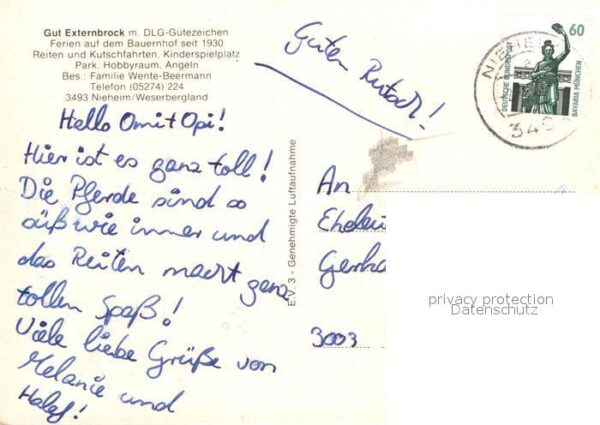 Gut Externbrock m. DLG-Gütezeichen
Ferien auf dem Bauernhof seit 1930
Reiten und Kutschfahrten, Kinderspielplatz
Park, Hobbyraum, Angeln
Bes.: Familie Wente-Beermann
Telefon (05274) 224
3493 Nieheim/Weserbergland
Guten Rutsch!
60
DEUTSCHE BUNDESPOST
BAVARIA MÜNCHEN
NIEHEI
349
Hello Omi+Opi!
Hier ist es ganz toll!
Die Pferde sind so
süß wie immer und
das Reiten macht ganz
tollen Spaß!
Viele liebe Grüße von
Melanie und
E.V. 3 - Genehmigte Luftaufnahme
An
Eheleu
Gerha
3003
privacy protection
Datenschutz